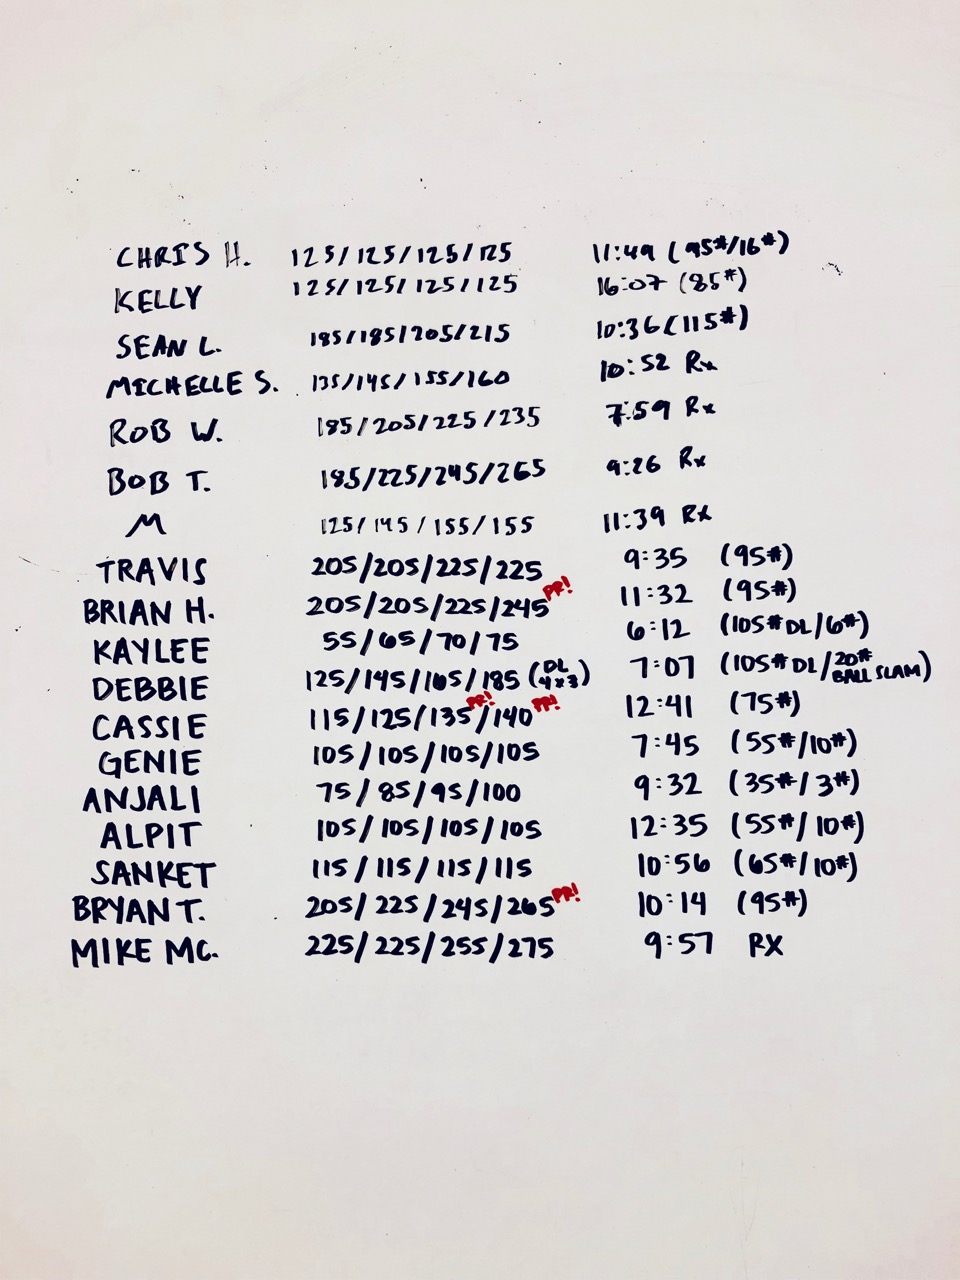 CHRIS H. 125/125/125/125 11:49 (95#/16#)
KELLY 125/125/125/125 16:07 (85#)
SEAN L. 185/185/205/215 10:36 (115#)
MICHELLE S. 135/145/155/160 10:52 Rx
ROB W. 185/205/225/235 7:59 Rx
BOB T. 185/225/245/265 9:26 Rx
M 125/145/155/155 11:39 Rx
TRAVIS 205/205/225/225 9:35 (95#)
BRIAN H. 205/205/225/245 PR! 11:32 (95#)
KAYLEE 55/65/70/75 6:12 (105# DL/6#)
DEBBIE 125/145/165/185 (DL 4x3) 7:07 (105# DL/20# BALL SLAM)
CASSIE 115/125/135 PR!/140 PR! 12:41 (75#)
GENIE 105/105/105/105 7:45 (55#/10#)
ANJALI 75/85/95/100 9:32 (35#/3#)
ALPIT 105/105/105/105 12:35 (55#/10#)
SANKET 115/115/115/115 10:56 (65#/10#)
BRYAN T. 205/225/245/265 PR! 10:14 (95#)
MIKE MC. 225/225/255/275 9:57 RX